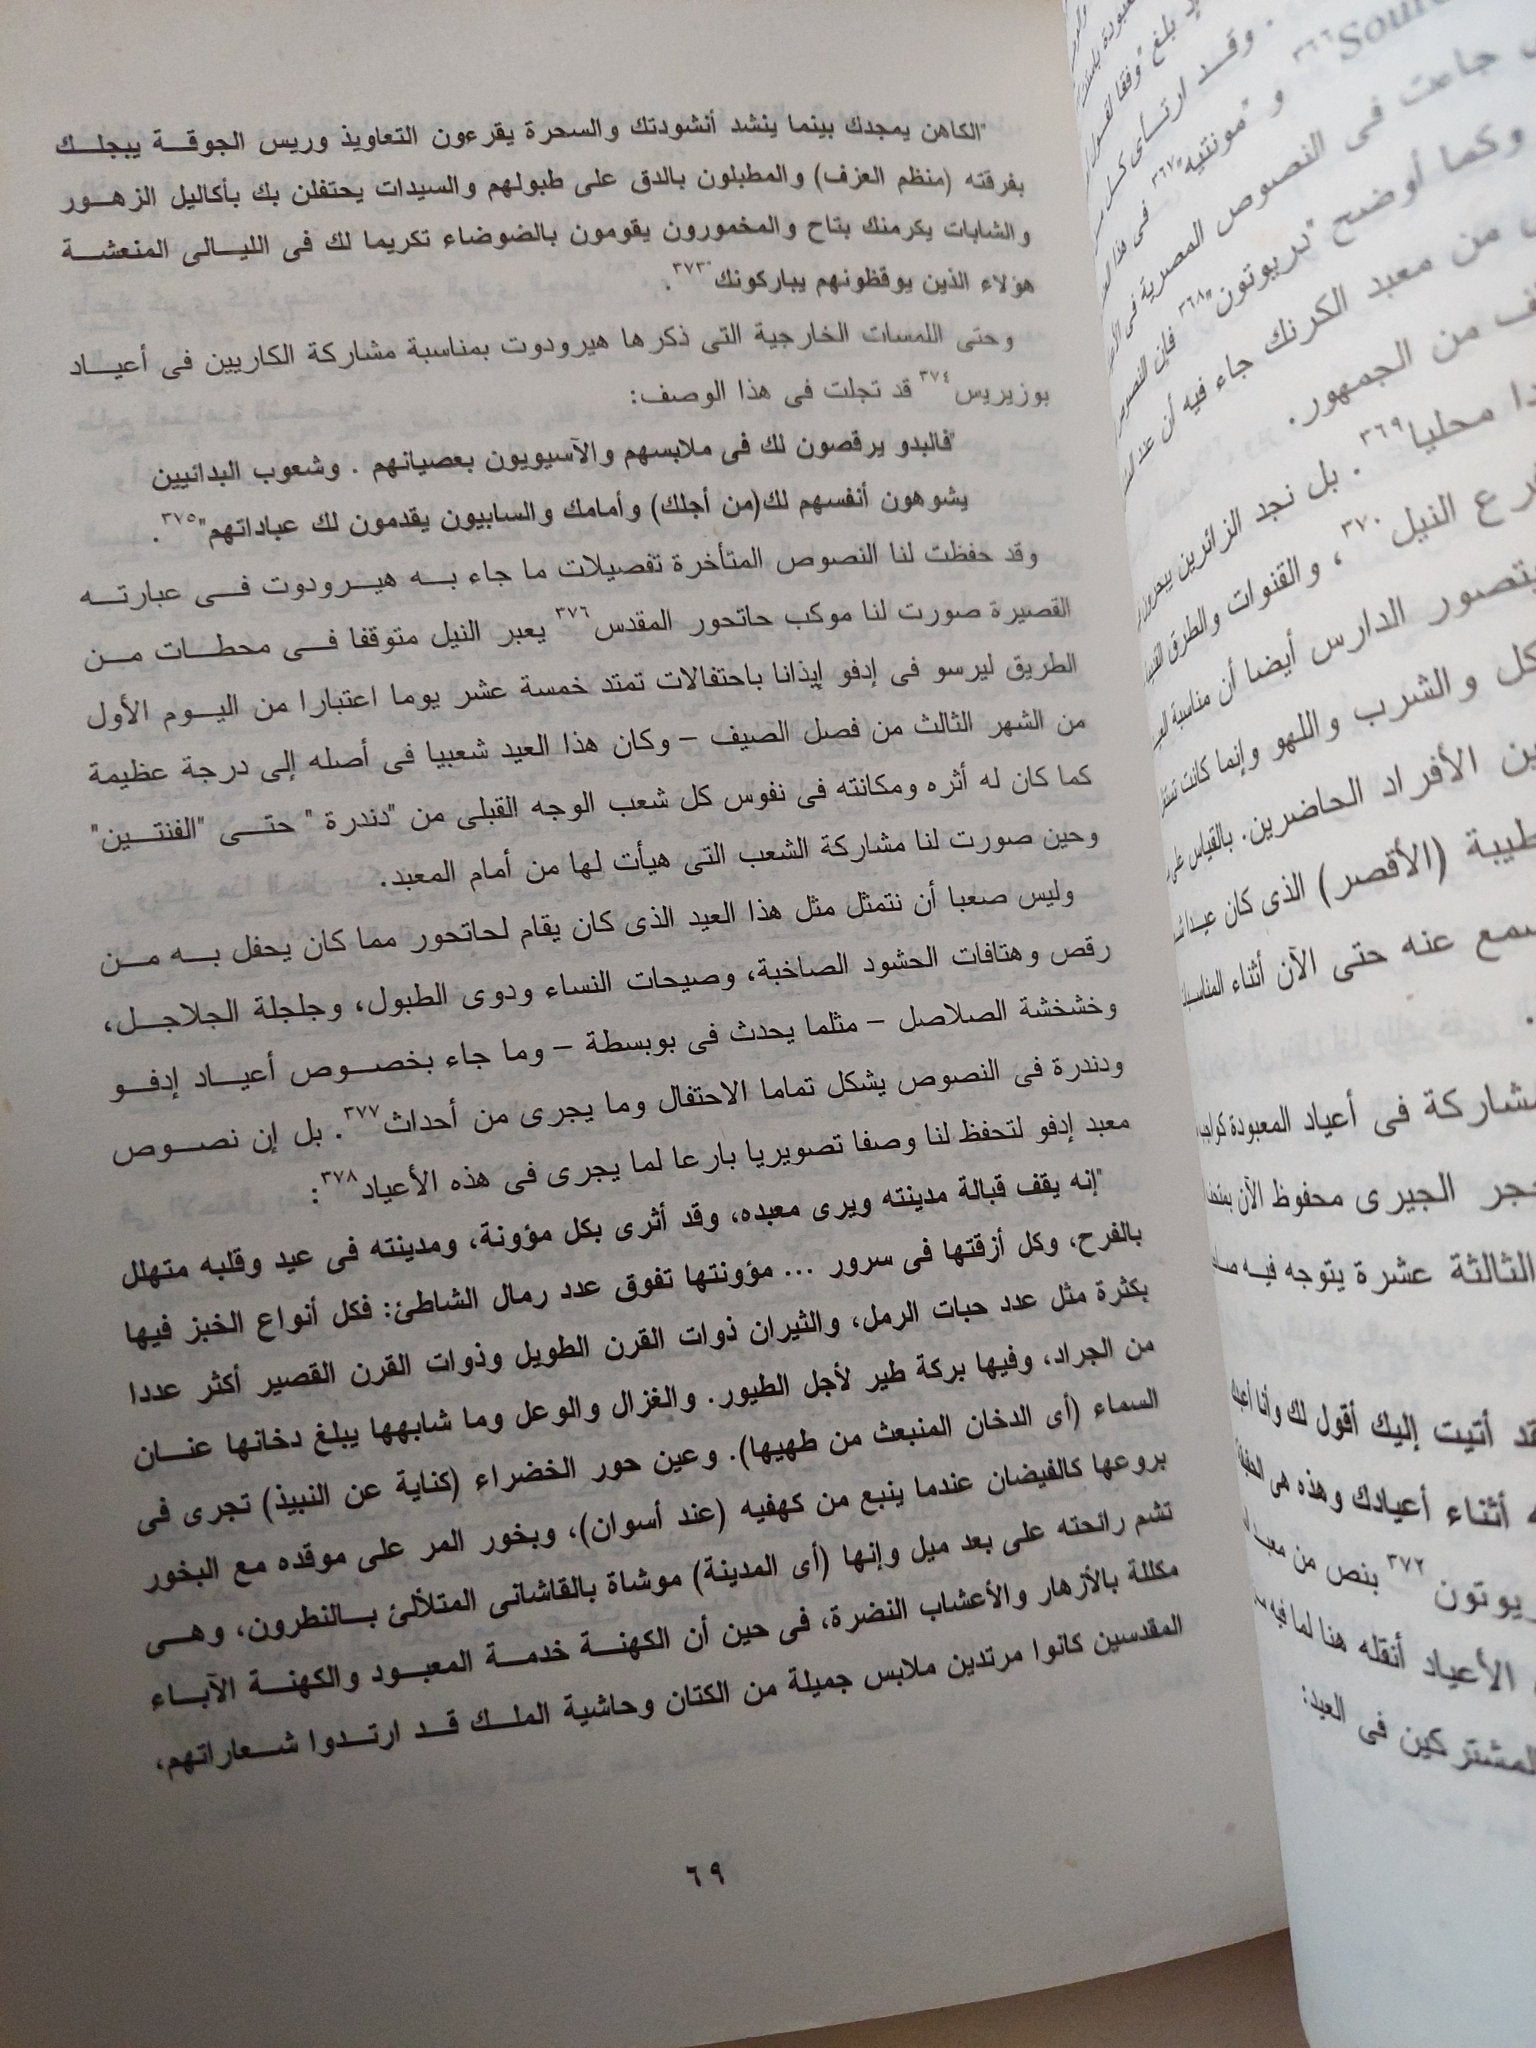 "الكاهن يمجدك بينما ينشد أنشودتك والسحرة يقرءون التعاويذ وريس الجوقة يبجلك
بفرقته (منظم العزف) والمطبلون بالدق على طبولهم والسيدات يحتفلن بك بأكاليل الزهور
والشابات يكرمنك بتاح والمخمورون يقومون بالضوضاء تكريما لك فى الليالى المنعشة
هؤلاء الذين يوقظونهم يباركونك"٣٧٣.
وحتى اللمسات الخارجية التى ذكرها هيرودوت بمناسبة مشاركة الكاريين فى أعياد
بوزيريس٣٧٤ قد تجلت فى هذا الوصف:
"فالبدو يرقصون لك فى ملابسهم والآسيويون بعصيانهم . وشعوب البدائيين
يشوهون أنفسهم لك(من أجلك) وأمامك والسابيون يقدمون لك عباداتهم"٣٧٥.
وقد حفظت لنا النصوص المتأخرة تفصيلات ما جاء به هيرودوت فى عبارته
القصيرة صورت لنا موكب حاتحور المقدس٣٧٦ يعبر النيل متوقفا فى محطات من
الطريق ليرسو فى إدفو إيذانا باحتفالات تمتد خمسة عشر يوما اعتبارا من اليوم الأول
من الشهر الثالث من فصل الصيف – وكان هذا العيد شعبيا فى أصله إلى درجة عظيمة
كما كان له أثره ومكانته فى نفوس كل شعب الوجه القبلى من "دندرة " حتى "الفنتين"
وحين صورت لنا مشاركة الشعب التى هيأت لها من أمام المعبد.
وليس صعبا أن نتمثل مثل هذا العيد الذى كان يقام لحاتحور مما كان يحفل به من
رقص وهتافات الحشود الصاخبة، وصيحات النساء ودوى الطبول، وجلجلة الجلاجل،
وخشخشة الصلاصل – مثلما يحدث فى بوبسطة – وما جاء بخصوص أعياد إدفو
ودندرة فى النصوص يشكل تماما الاحتفال وما يجرى من أحداث٣٧٧. بل إن نصوص
معبد إدفو لتحفظ لنا وصفا تصويريا بارعا لما يجرى فى هذه الأعياد٣٧٨:
"إنه يقف قبالة مدينته ويرى معبده، وقد أثرى بكل مؤونة، ومدينته فى عيد وقلبه متهلل
بالفرح، وكل أزقتها فى سرور ... مؤونتها تفوق عدد رمال الشاطئ: فكل أنواع الخبز فيها
بكثرة مثل عدد حبات الرمل، والثيران ذوات القرن الطويل وذوات القرن القصير أكثر عددا
من الجراد، وفيها بركة طير لأجل الطيور. والغزال والوعل وما شابهها يبلغ دخانها عنان
السماء (أى الدخان المنبعث من طهيها). وعين حور الخضراء (كناية عن النبيذ) تجرى فى
بروعها كالفيضان عندما ينبع من كهفيه (عند أسوان)، وبخور المر على موقده مع البخور
تشم رائحته على بعد ميل وإنها (أى المدينة) موشاة بالقاشانى المتلألئ بالنطرون، وهى
مكللة بالأزهار والأعشاب النضرة، فى حين أن الكهنة خدمة المعبود والكهنة الآباء
المقدسين كانوا مرتدين ملابس جميلة من الكتان وحاشية الملك قد ارتدوا شعاراتهم،
٦٩
وقد ارتأى كل
و "مونتيه"٣٦٧ فى
جاءت فى النصوص المصرية فى
وكما أوضح "دريوتون"٣٦٨ فإن
من معبد الكرنك جاء فيه أن عند
من الجمهور.
محليا٣٦٩. بل نجد الزائرين
النيل٣٧٠، والقنوات والطرق
يتصور الدارس أيضا أن مناسبة
والشرب واللهو وإنما كانت
الأفراد الحاضرين. بالقياس على
طيبة (الأقصر) الذى كان
عنه حتى الآن أثناء
مشاركة فى أعياد المعبودة
الجيرى محفوظ الآن
الثالثة عشرة يتوجه فيه
أتيت إليك أقول لك وأنا
أثناء أعيادك وهذه هى
٣٧٢ بنص من معبد
الأعياد أنقله هنا لما فيه
المشتركين فى العيد: